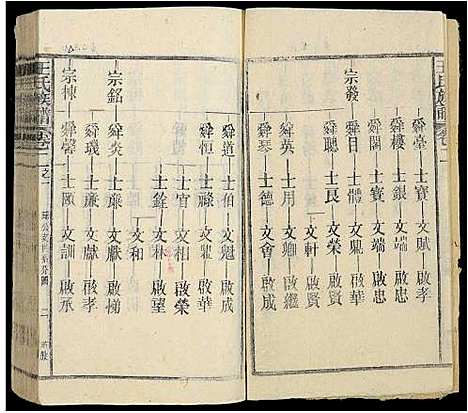 王氏族譜
卷二
舜臺—士寶—文賦—啟孝
舜樓—士銀—文端—啟忠
舜閣—士寶—文端—啟忠
宗發—舜日—士體—文魁—啟賢
舜聰—士民—文榮—啟賢
文軒
舜英—士用—文魁—啟繼
舜琴—士德—文會—啟成
舜道—士伯—文魁—啟成
舜恒—士祿—文耀—啟華
士官—文相—啟榮
士銓—文林—啟望
宗銘—舜炎—士廉—文獻—啟悌
文和
舜璣—士廉—文獻—啟孝
宗棟—舜馨—士頤—文訓—啟承
王氏族譜
卷二
之一
二